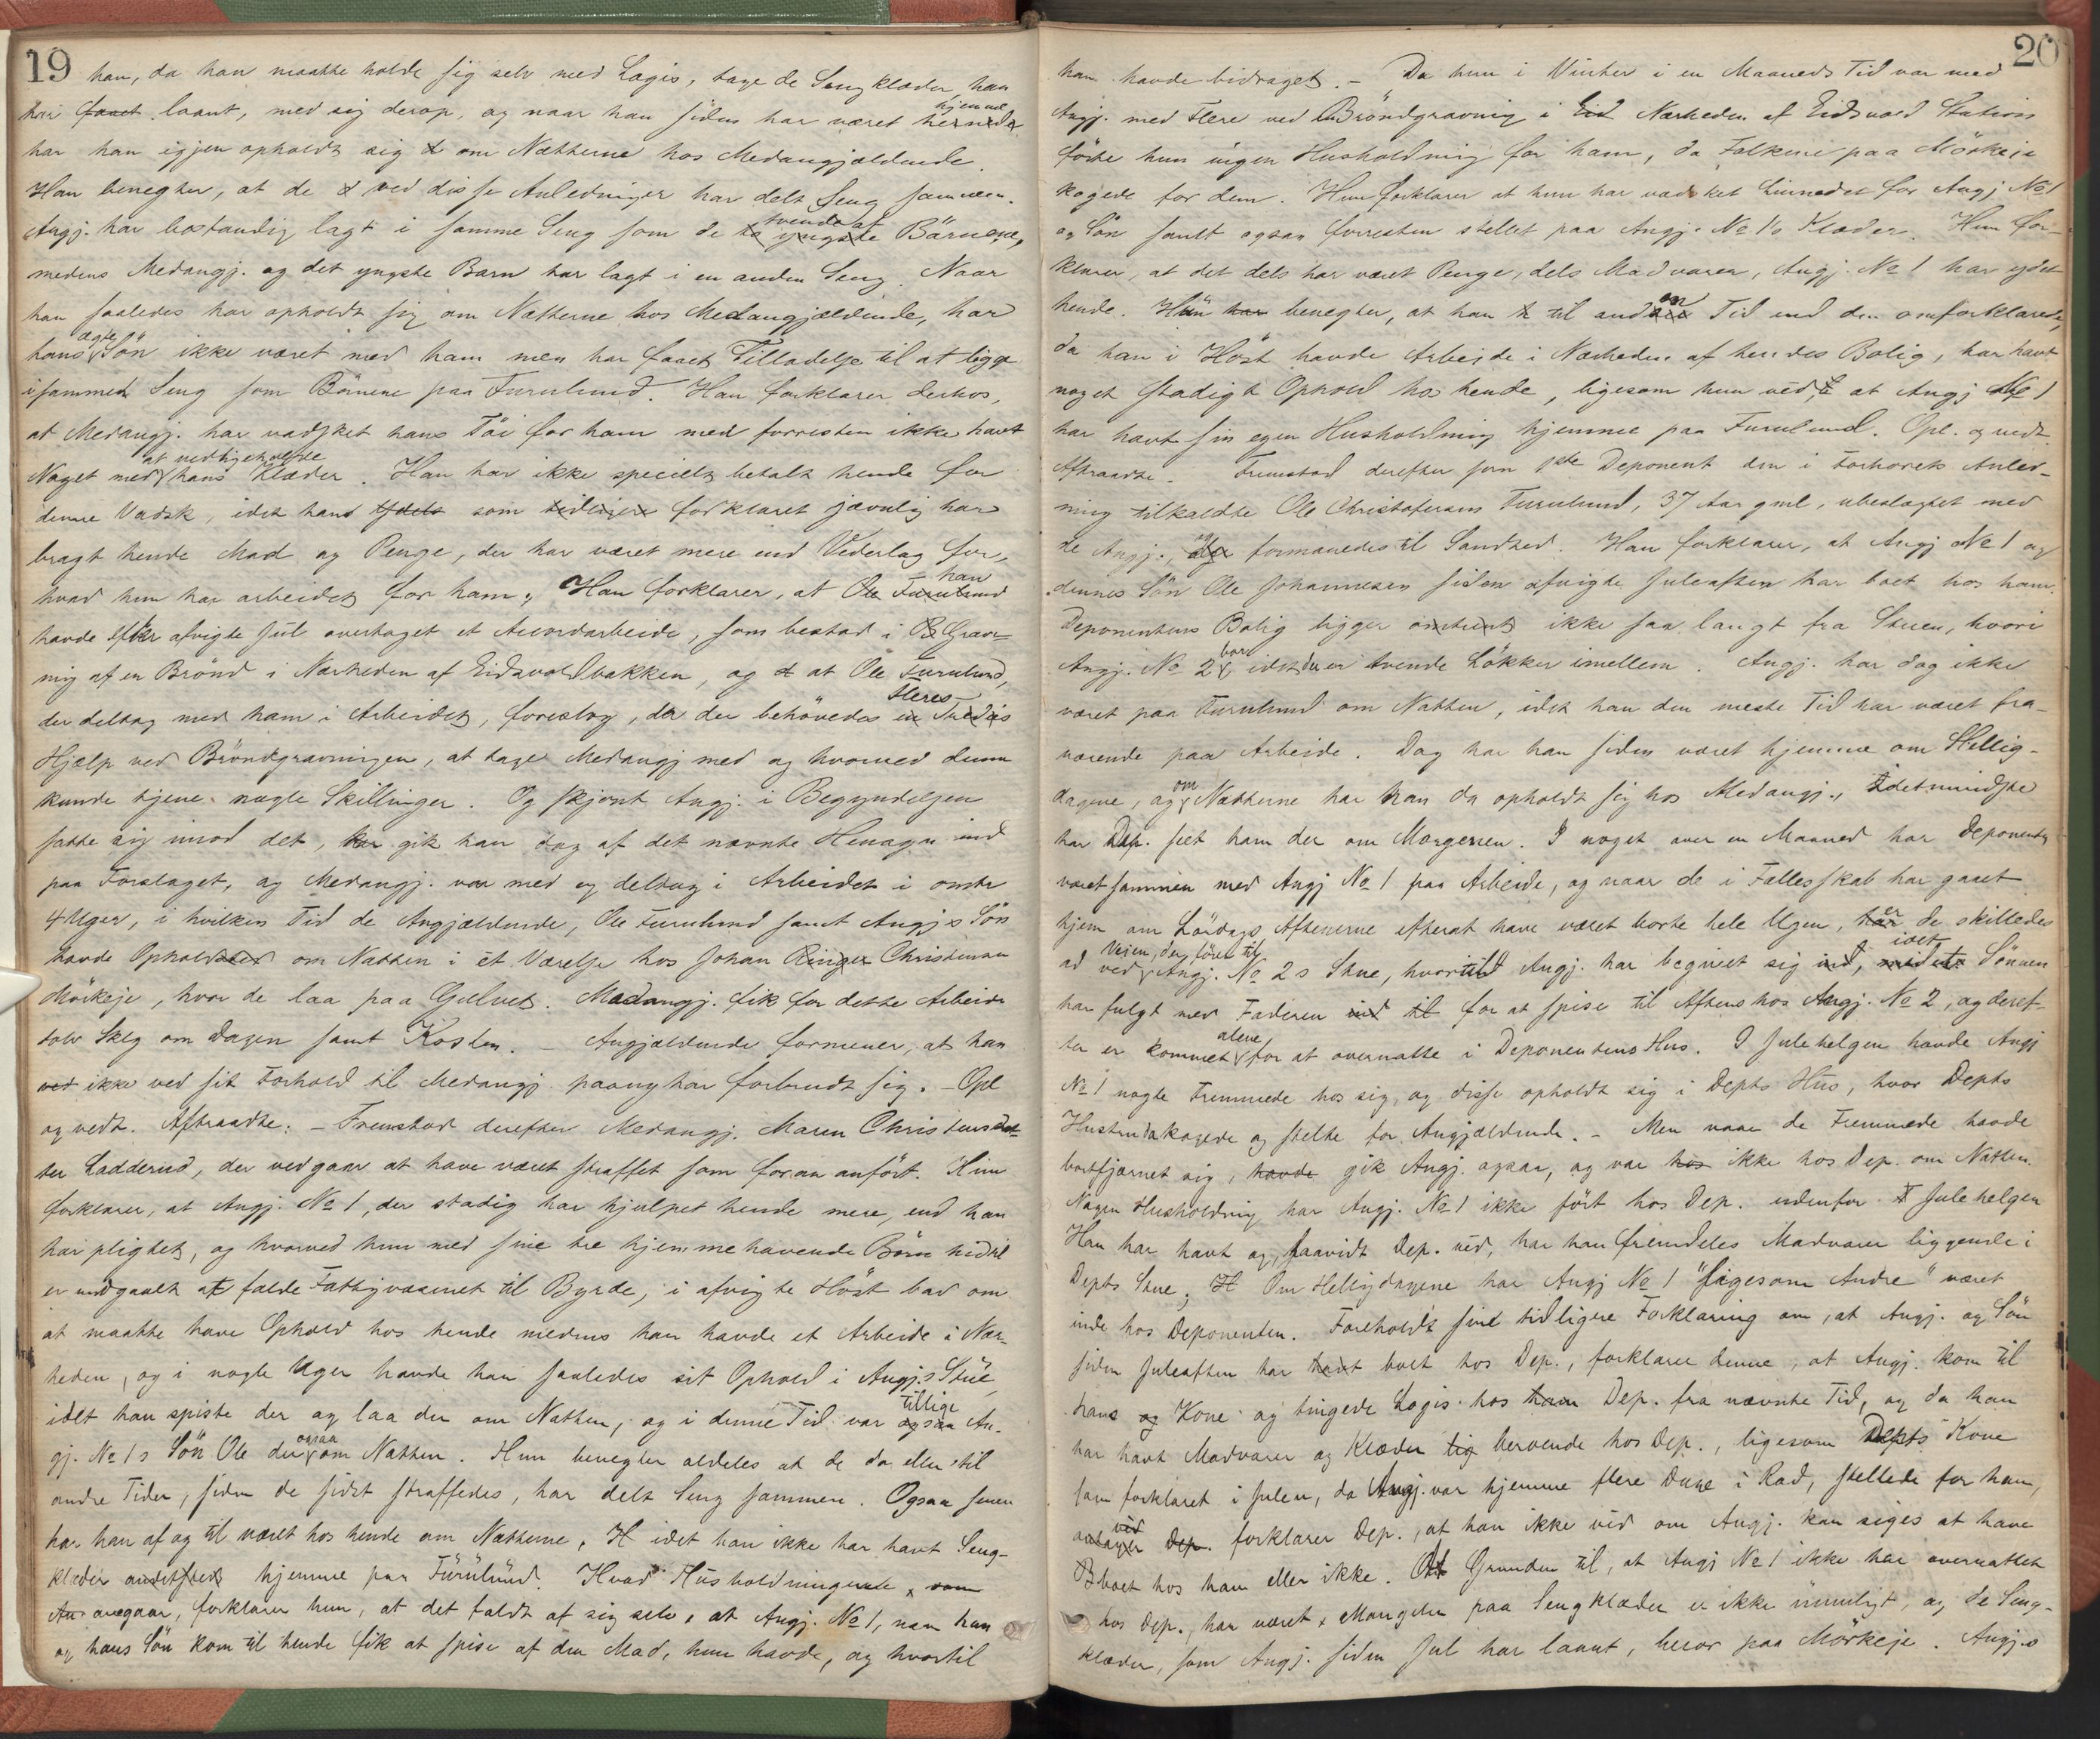 19
han, da han maatte holde sig selv med Logis, tage de Sengklæder, han
har faaet laant, med sig derop, og naar han siden har været hjemme
har han igjen opholdt sig om Nætterne hos Medangjældende.
Han benegter, at de ved disse Anledninger har delt Seng sammen.
Angj. har bestandig lagt i samme Seng som de tvende af Börnene,
medens Medangj. og det yngste Barn har lagt i en anden Seng. Naar
han saaledes har opholdt sig om Nætterne hos Medangjældende, har
hans ægte Sön ikke været med ham men har faaet Tilladelse til at ligge
i samme Seng som Börnene paa Furulund. Han forklarer derhos,
at Medangj. har vadsket hans Töi for ham med forresten ikke havt
Noget med at vedligeholde hans Klæder. Han har ikke specielt betalt hende for
denne Vadsk, idet han som forklaret jævnlig har
bragt hende Mad og Penge, der har været mere end Vederlag for,
hvad hun har arbeidet for ham. Han forklarer, at han
havde efter afvigte Jul overtaget et Accordarbeide, som bestod i Grav-
ning af en Brönd i Nærheden af Eidsvoldbakken, og at Ole Furulund,
der deltog med ham i Arbeidet, foreslog, da der behövedes Fleres
Hjælp ved Bröndgravningen, at tage Medangj med og hvorved denne
kunde tjene nogle Skillinger. Og skjönt Angj. i Begyndelsen
satte sig imod det, gik han dog af det nævnte Hensyn ind
paa Forslaget, og Medangj. var med og deltog i Arbeidet i omtr
4 Uger, i hvilken Tid de Angjældende, Ole Furulund samt Angjs Sön
havde Ophold om Natten i et Værelse hos Johan Christensen
Mörkeje, hvor de laa paa Gulvet. Medangj. fik for dette Arbeide
tolv Sklg om Dagen samt Kosten. – Angjældende formener, at han
ikke ved sit Forhold til Medangj. paany har forbrudt sig. – Opl
og vedt. Aftraadte. – Fremstod derefter Medangj. Maren Christensdat-
ter Ladderud, der vedgaar at have været straffet som foran anfört. Hun
forklarer, at Angj. No 1, der stadig har hjulpet hende mere, end han
har pligtet, og hvorved hun med sine tre hjemmehavende Börn hidtil
er undgaaet at falde Fattigvæsenet til Byrde, i afvigte Höst bad om
at maatte have Ophold hos hende medens han havde et Arbeide i Nær-
heden, og i nogle Uger havde han saaledes sit Ophold i Angj.s Stue,
idet han spiste der og laa der om Natten, og i denne Tid var tillige An-
gj. No 1s Sön Ole der ogsaa om Natten. Hun benegter aldeles at de da eller til
andre Tider, siden de sidst straffedes, har delt Seng sammen. Ogsaa senere
har han af og til været hos hende om Nætterne, idet han ikke har havt Seng-
klæder hjemme paa Furulund. Hvad Husholdningen
angaar, forklarer hun, at det faldt af sig selv, at Angj. No 1, naar han
og hans Sön kom til hende fik at spise af den Mad, hun havde, og hvortil
20
han havde bidraget. – Da hun i Vinter i en Maaneds Tid var med
Angj. med Flere ved Bröndgravning i Nærheden af Eidsvold Station
förte hun ingen Husholdning for ham, da Folkene paa Mörkeje
kogede for dem. Hun forklarer at hun har vadsket Linnedet for Angj No 1
og Sön samt ogsaa forresten stellet paa Angj. No 1s Klæder. Hun for-
klarer, at det dels har været Penge, dels Madvarer, Angj. No 1 har ydet
hende. Hun benegter, at han til anden Tid end den omforklarede,
da han i Höst havde Arbeide i Nærheden af hendes Bolig, har havt
noget stadigt Ophold hos hende, ligesom hun ved, at Angj No 1
har havt sin egen Husholdning hjemme paa Furulund. Opl. og vedt.
Aftraadte. – Fremstod derefter som 1ste Deponent den i Forhörets Anled-
ning tilkaldte Ole Christofersen Furulund, 37 Aar gml, ubeslægtet med
de Angj., og formanedes til Sandhed. Han forklarer, at Angj No 1 og
dennes Sön Ole Johannesen siden afvigte Juleaften har boet hos ham.
Deponentens Bolig ligger ikke saa langt fra Stuen, hvori
Angj. No 2 bor, idet der er tvende Lökker imellem. Angj. har dog ikke
været paa Furulund om Natten, idet han den meste Tid har været fra-
værende paa Arbeide. Dog har han siden været hjemme om Hellig-
dagene, og om Nætterne har han da opholdt sig hos Medangj., idetmindste
har Dep. seet ham der om Morgenen. I noget over en Maaned har Deponenten
været sammen med Angj No 1 paa Arbeide, og naar de i Fællesskab har gaaet
hjem om Lördags Aftenerne efterat have været borte hele Ugen, er de skilledes
ad ved Veien, der förer til Angj. No 2s Stue, hvortil Angj. har begivet sig, idet Sönnen
har fulgt med Faderen for at spise til Aftens hos Angj. No 2, og deref-
ter er kommet alene for at overnatte i Deponentens Hus. I Julehelgen havde Angj
No 1 nogle Fremmede hos sig, og disse opholdt sig i Depts Hus, hvor Depts
Hustru kogede og stelte for Angjældende. – Men naar de Fremmede havde
bortfjærnet sig, gik Angj. ogsaa, og var ikke hos Dep. om Natten.
Nogen Husholdning har Angj. No 1 ikke fört hos Dep. udenfor Julehelgen
Han har havt og, saavidt Dep. ved, har han fremdeles Madvarer liggende i
Depts Stue. Om Helligdagene har Angj No 1 "ligesom Andre" været
inde hos Deponenten. Foreholdt sine tidligere Forklaring om, at Angj. og Sön
siden Juleaften har boet hos Dep., forklarer denne, at Angj. kom til
hans Kone og tingede Logis hos Dep. fra nævnte Tid, og da han
har havt Madvarer og Klæder beroende hos Dep., ligesom Depts Kone
som forklaret i Julen, da Angj. var hjemme flere Dage i Rad, stellede for ham,
forklarer Dep., at han ikke ved om Angj. kan siges at have
boet hos ham eller ikke. Grunden til, at Angj No 1 ikke har overnattet
hos Dep., har været Mangelen paa Sengklæder er ikke umuligt, og de Seng-
klæder, som Angj. siden Jul har laant, beror paa Mörkeje. Angj.s